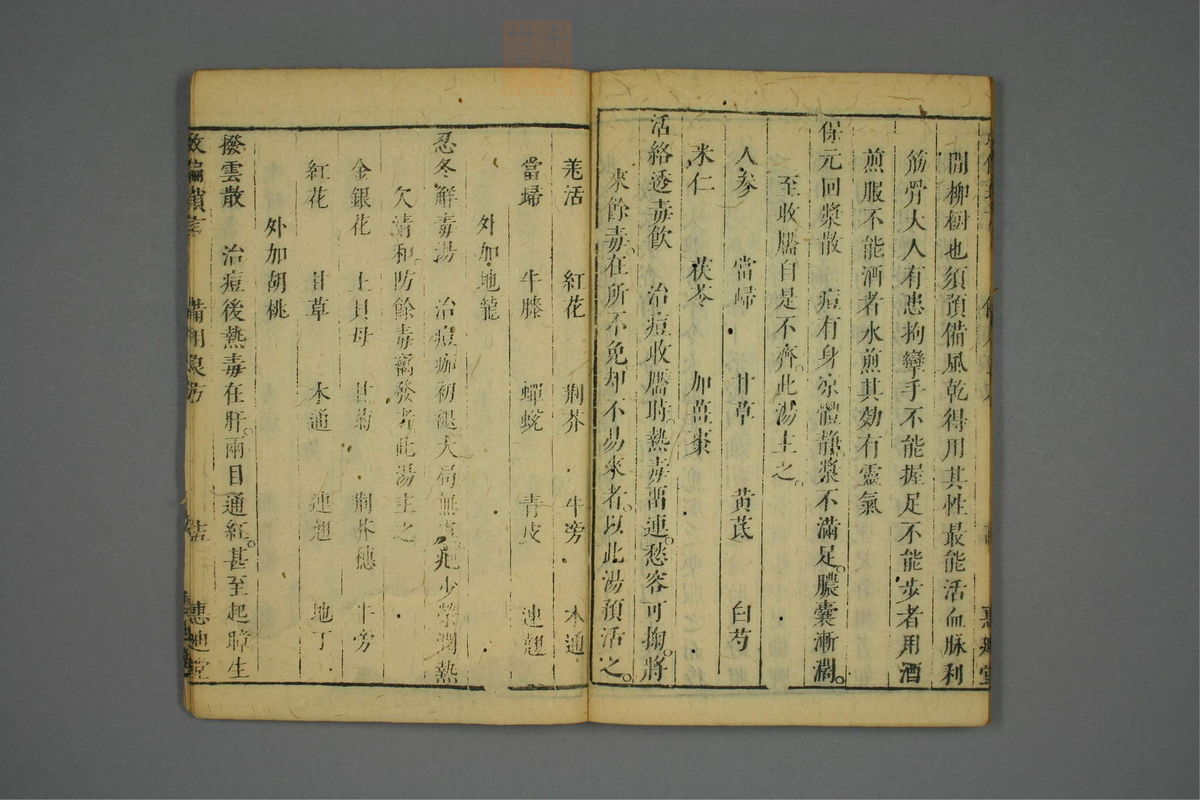 間柳樹也須預備風乾得用其性最能活血脉利
筋骨大人有患拘攣手不能握足不能步者用酒
煎服不能酒者水煎其効有靈氣
保元回漿散　痘有身凉體静漿不滿足。膿囊漸濶。
至收靨自是不齊。此湯主之。
人參　當歸　甘草　黄芪　白芍
米仁　茯苓　加薑棗
活絡透毒飲　治痘收靨時。熱毒畱連。愁容可掬。將
來餘毒。在所不免。却不易來者。以此湯預活之。
羌活　紅花　荆芥　牛旁　木通
當歸　牛膝　蟬蛻　青皮　連翹
外加地龍
忍冬解毒湯　治痘痂初褪大局無虞。少榮潤熱
欠清和。防餘毒竊發者此湯主之
金銀花　土貝母　甘菊　荆芥穗　牛旁
紅花　甘草　木通　連翹　地丁
外加胡桃
撥雲散　治痘後熱毒在肝。兩目通紅。甚至起障生
救偏瑣言　備用良方　惠迪堂